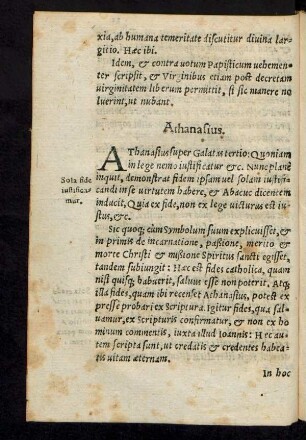 xia, ab humana temeritate discutitur diuina largitio. Hæc ibi.
Idem, & contra uotum Papisticum uehementer scripsit, & Virginibus etiam post decretam
uirginitatem liberum permittit, si sic manere noluerint, ut nubant.
Athanasius.
AThanasius super Galatas tertio: Quoniam
in lege nemo iustificatur &c. Nunc plane
inquit, demonstrat fidem ipsam uel solam iustificandi in se uirtutem habere, & Abacuc dicentem
inducit, Quia ex fide, non ex lege uicturus est iustus, &c.
Sola fide
iustificamur.
Sic quoq; cùm Symbolum suum explicuisset, &
in primis de incarnatione, passione, merito &
morte Christi & missione Spiritus sancti egisset,
tandem subiungit: Hæc est fides catholica, quam
nisi quisq; habuerit, saluus esse non poterit. Atq;
illa fides, quam ibi recenset Athanasius, potest expresse probari ex Scriptura. Igitur fides, qua saluamur, ex Scripturis confirmatur, & non ex hominum commentis, iuxta illud Ioannis: Hæc autem scripta sunt, ut credatis & credentes habeatis uitam æternam.
In hoc